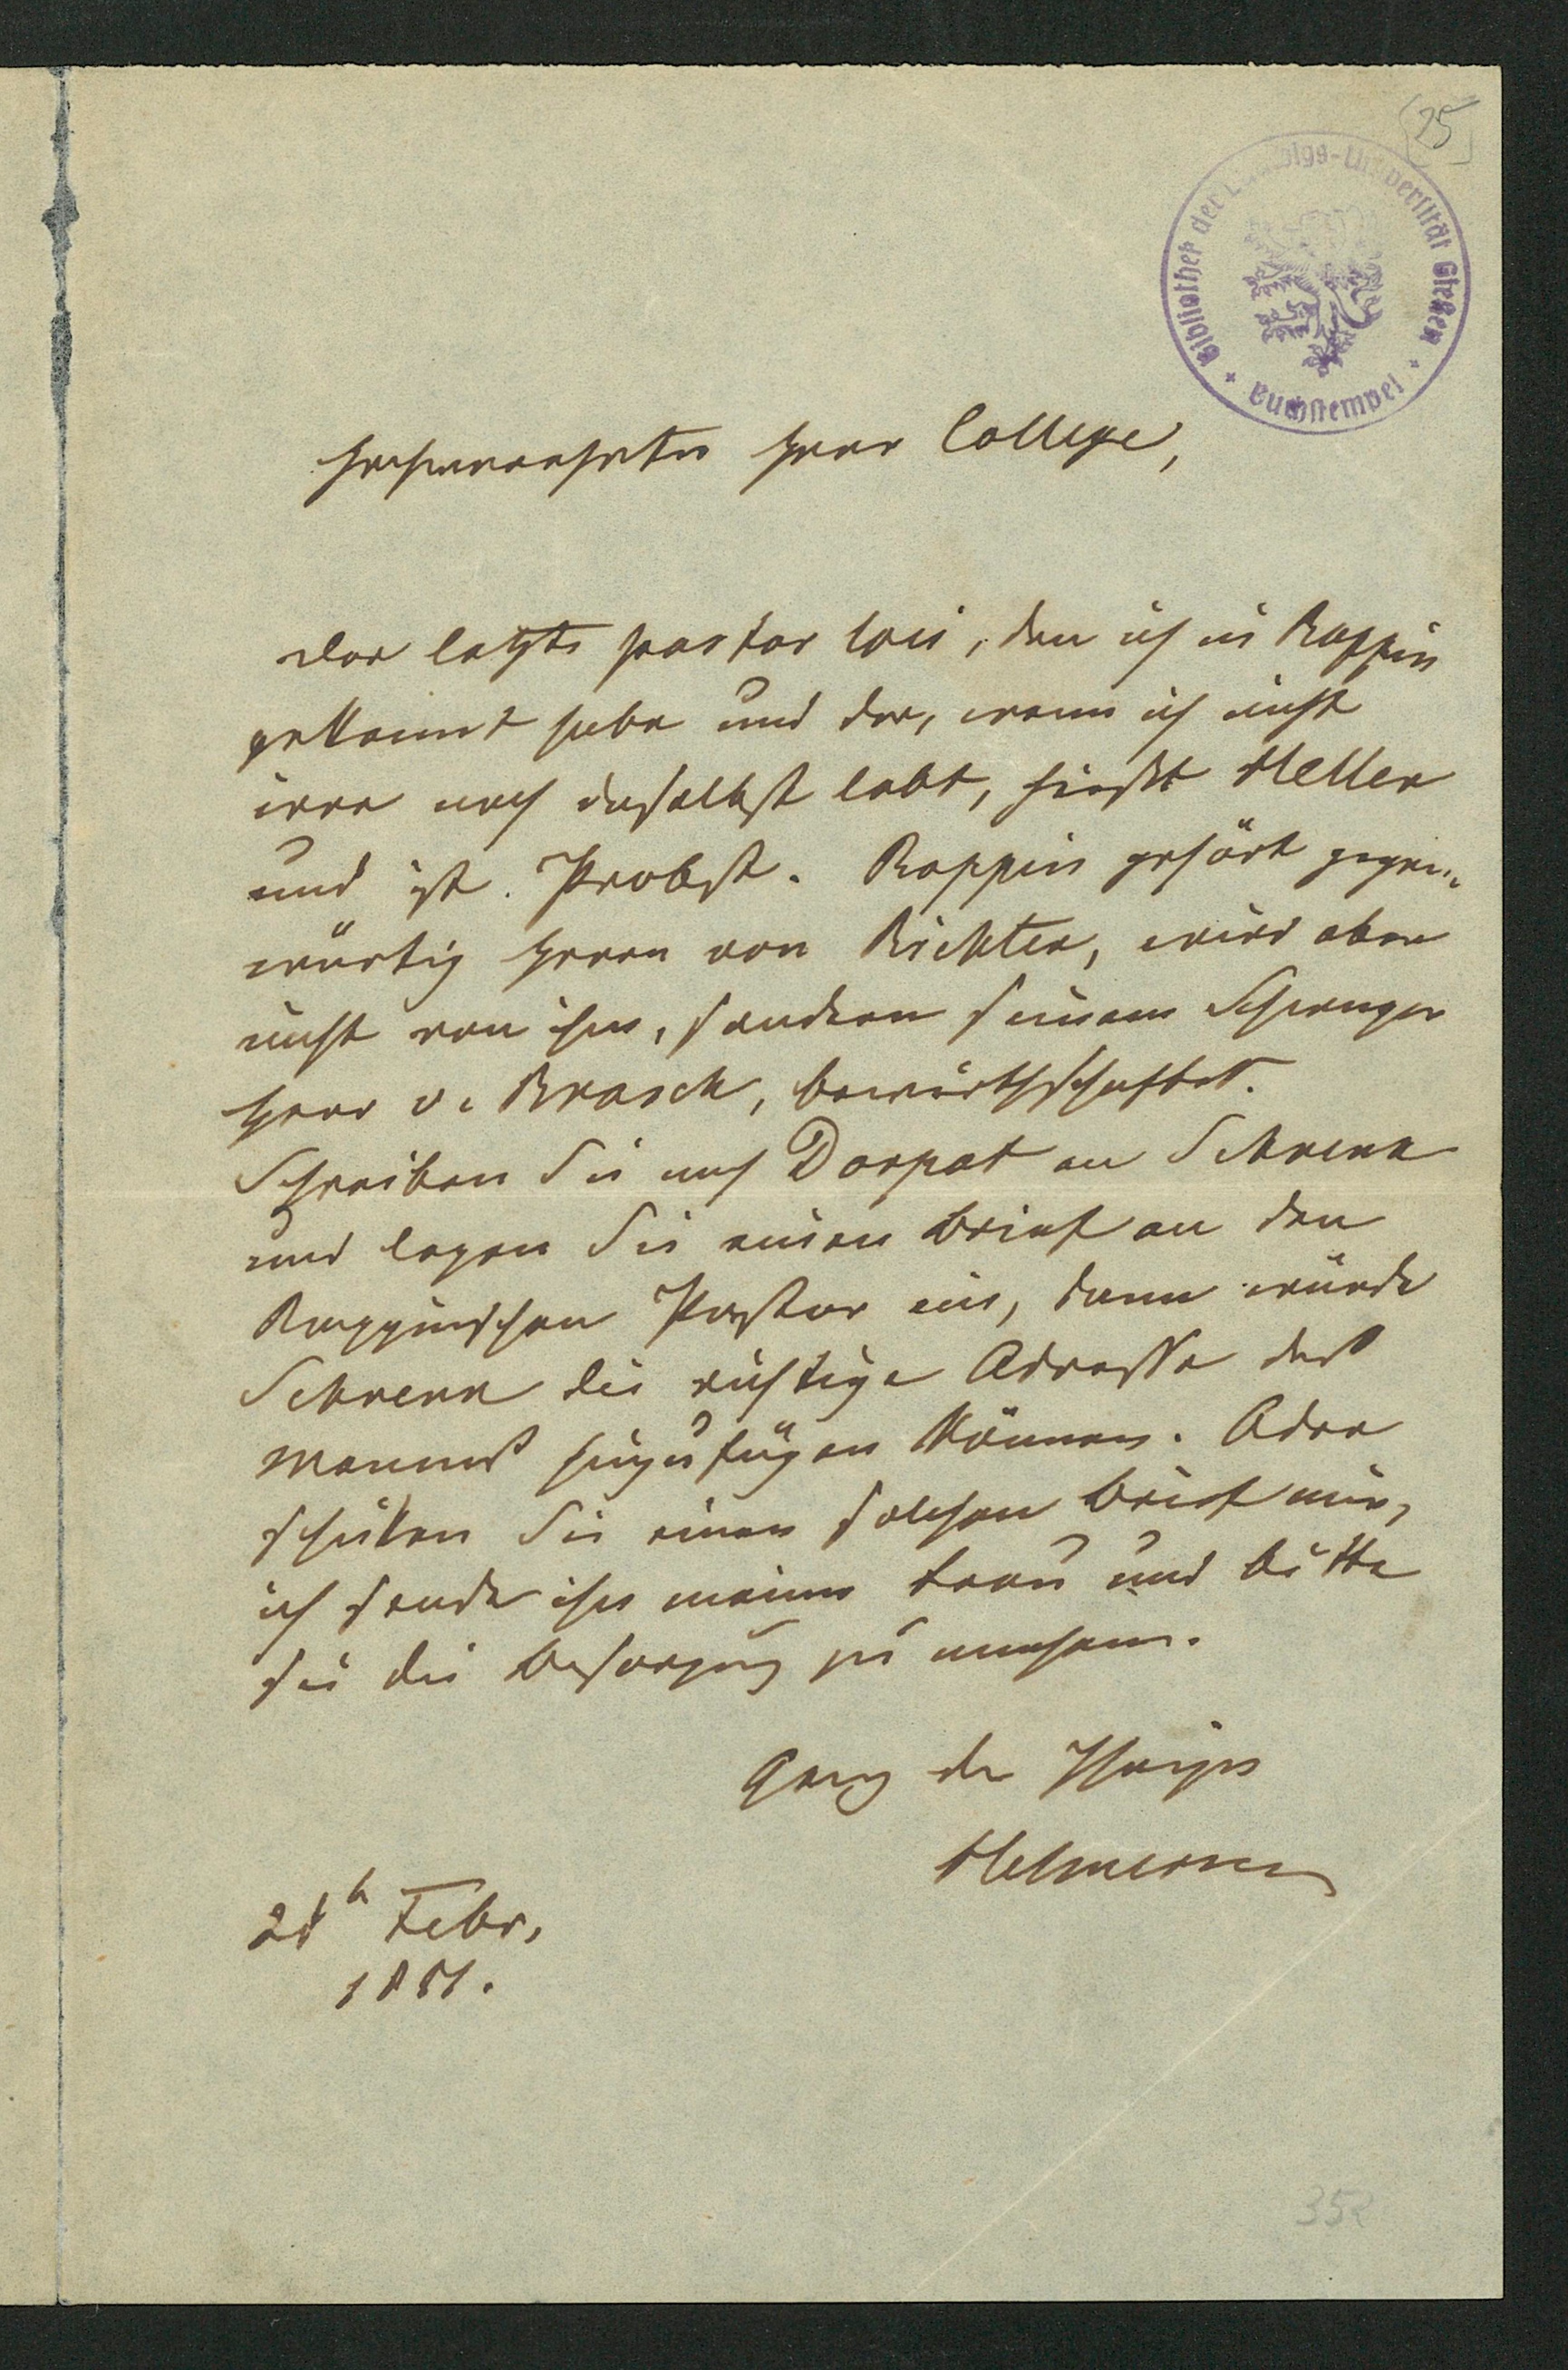 25
Bibliothek der Ludwigs-Universität Gießen
Buchstempel
Hochverehrter Herr College,
Der letzte pastor loci, den ich in Rappin
gekannt habe und der, wenn ich nicht
irre noch daselbst lebt, heißt Heller
und ist Probst. Rappin gehört gegen„
wärtig Herrn von Richter, wird aber
nicht von ihm, sondern seinem Schwager
Herr v. Brasch, bewirthschaftet.
Schreiben Sie nach Dorpat an Schrenk
und legen Sie einen Brief an den
Rappinschen Pastor ein, dann würde
Schrenk die richtige Adresse des
Mannes hinzufügen können. Oder
schicken Sie einen solchen Brief mir,
ich sende ihn meiner Frau und bitte
sie die Besorgung zu
Ganz der Ihrige
Helmersen
Febr.
352